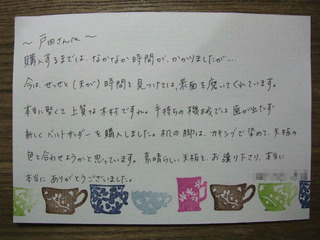 ～戸田さんへ～
購入するまでは、なかなか時間が、かかりましたが…
今は、せっせと(夫が)時間を見つけては、表面を磨いてくれています。
本当に堅くて上質な木材ですね。手持ちの機械では歯が出たず
新しくベルトサンダーを購入しました。机の脚は、カキシブで染めて、天板の
色と合わせようかと思っています。素晴らしい天板を、お譲り下さり、本当に
本当にありがとうございました。